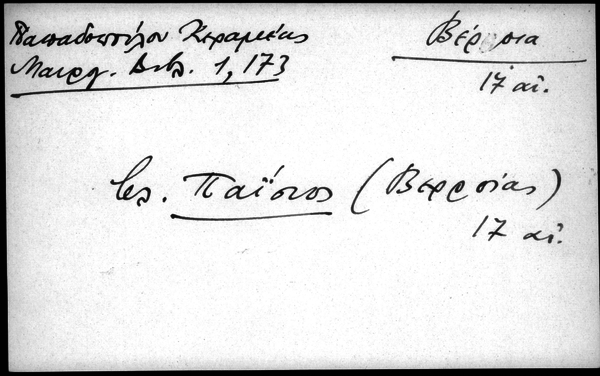 Παπαδοπούλου Κεραμέως
Μαυρογ. Βιβλ. 1, 173
Βέρροια
17 αἰ.
βλ. Παΐσιος (Βερροίας)
17 αἰ.